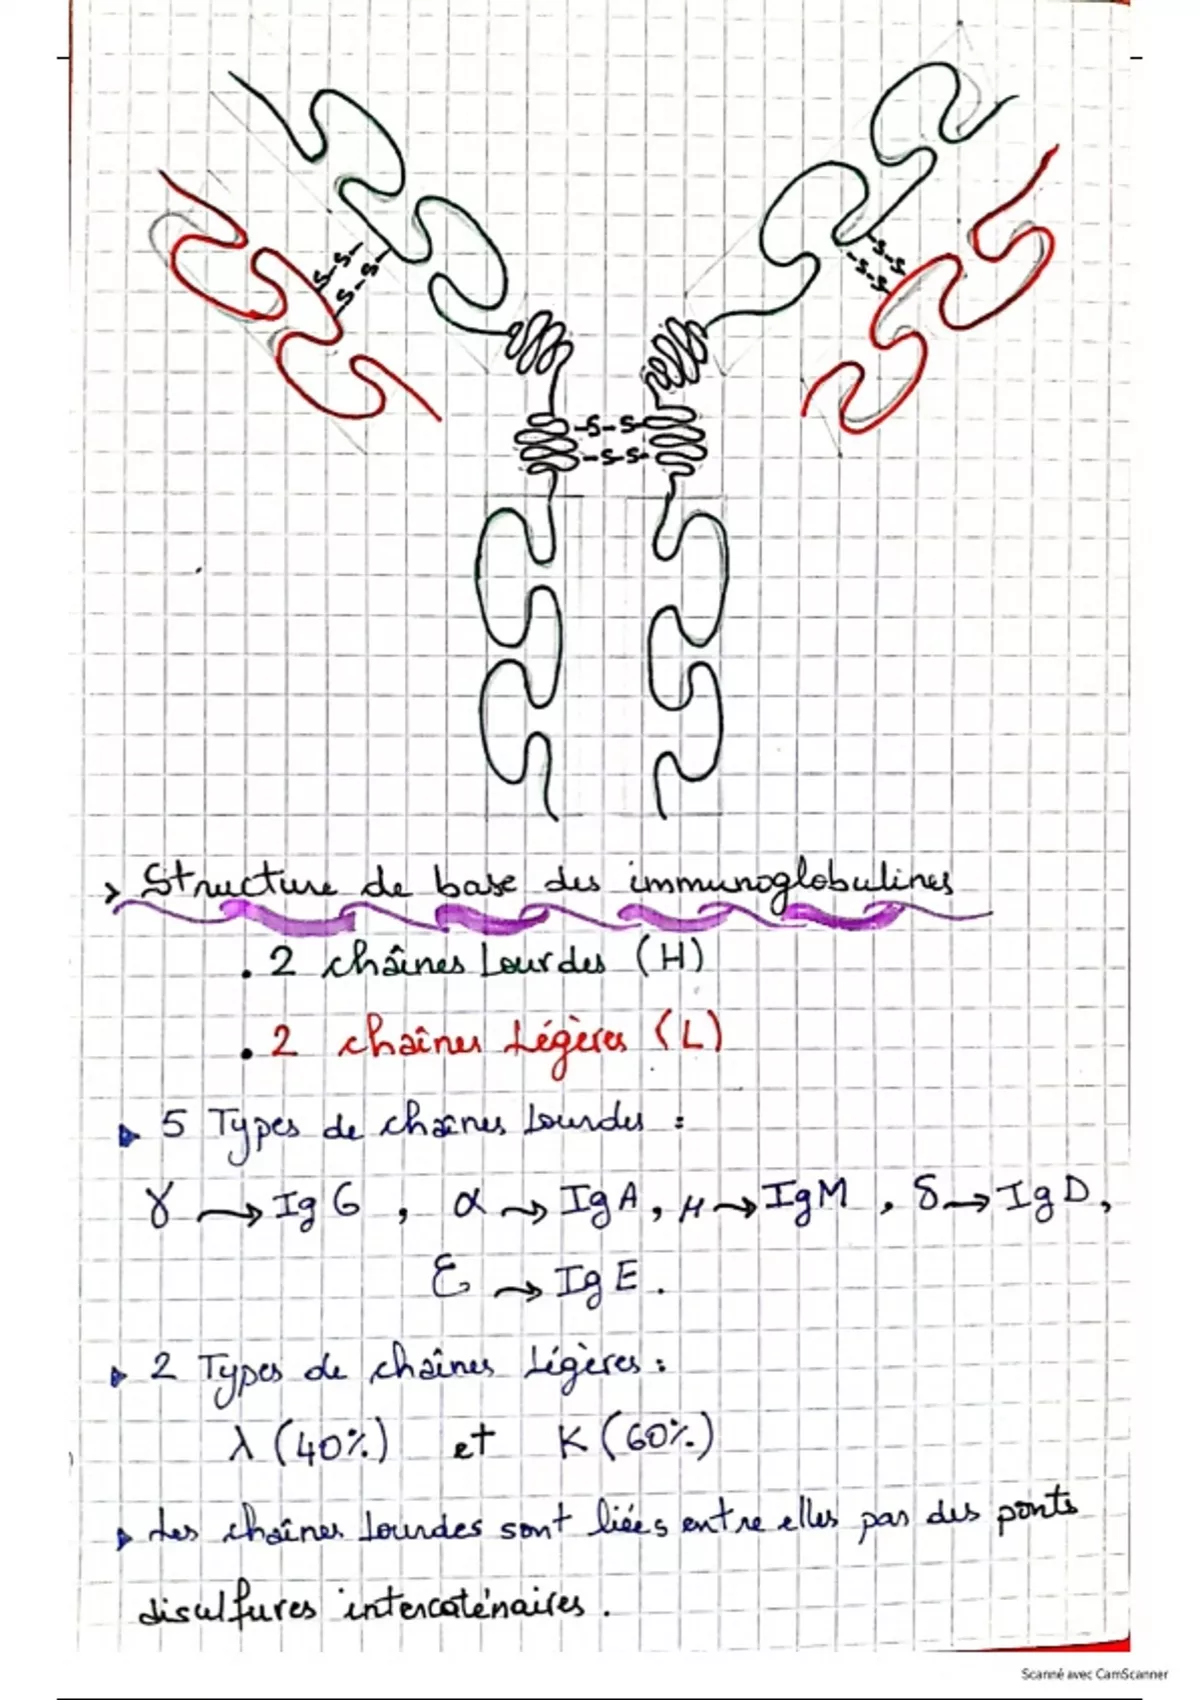 S-S-
S-S-
-S-S
-S-S
-S-S-
-S-S-
> Structure de base des immunoglobulines
. 2 chaînes Lourdes (H)
. 2 chaînes Légères (L)
▶ 5 Types de chaînes Lourdes :
γ → IgG , α → IgA , μ → IgM , δ → IgD ,
ε → IgE .
▶ 2 Types de chaînes Légères :
λ (40%) et K (60%)
▶ Les chaînes Lourdes sont liées entre elles par des ponts
disulfures intercaténaires .
Scanné avec CamScanner